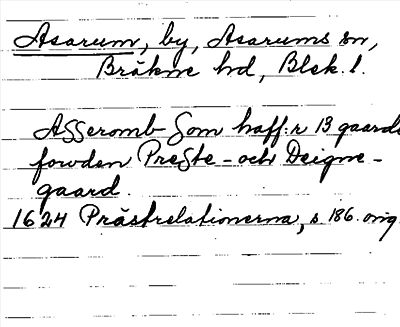 Asarum, by, Asarums sn,
Bräkne hd, Blek. l.
Asseromb Som haff:r 13 gaarde
fowden Preste- och Deigne-
gaard.
1624 Prästrelationerna, s 186. orig.